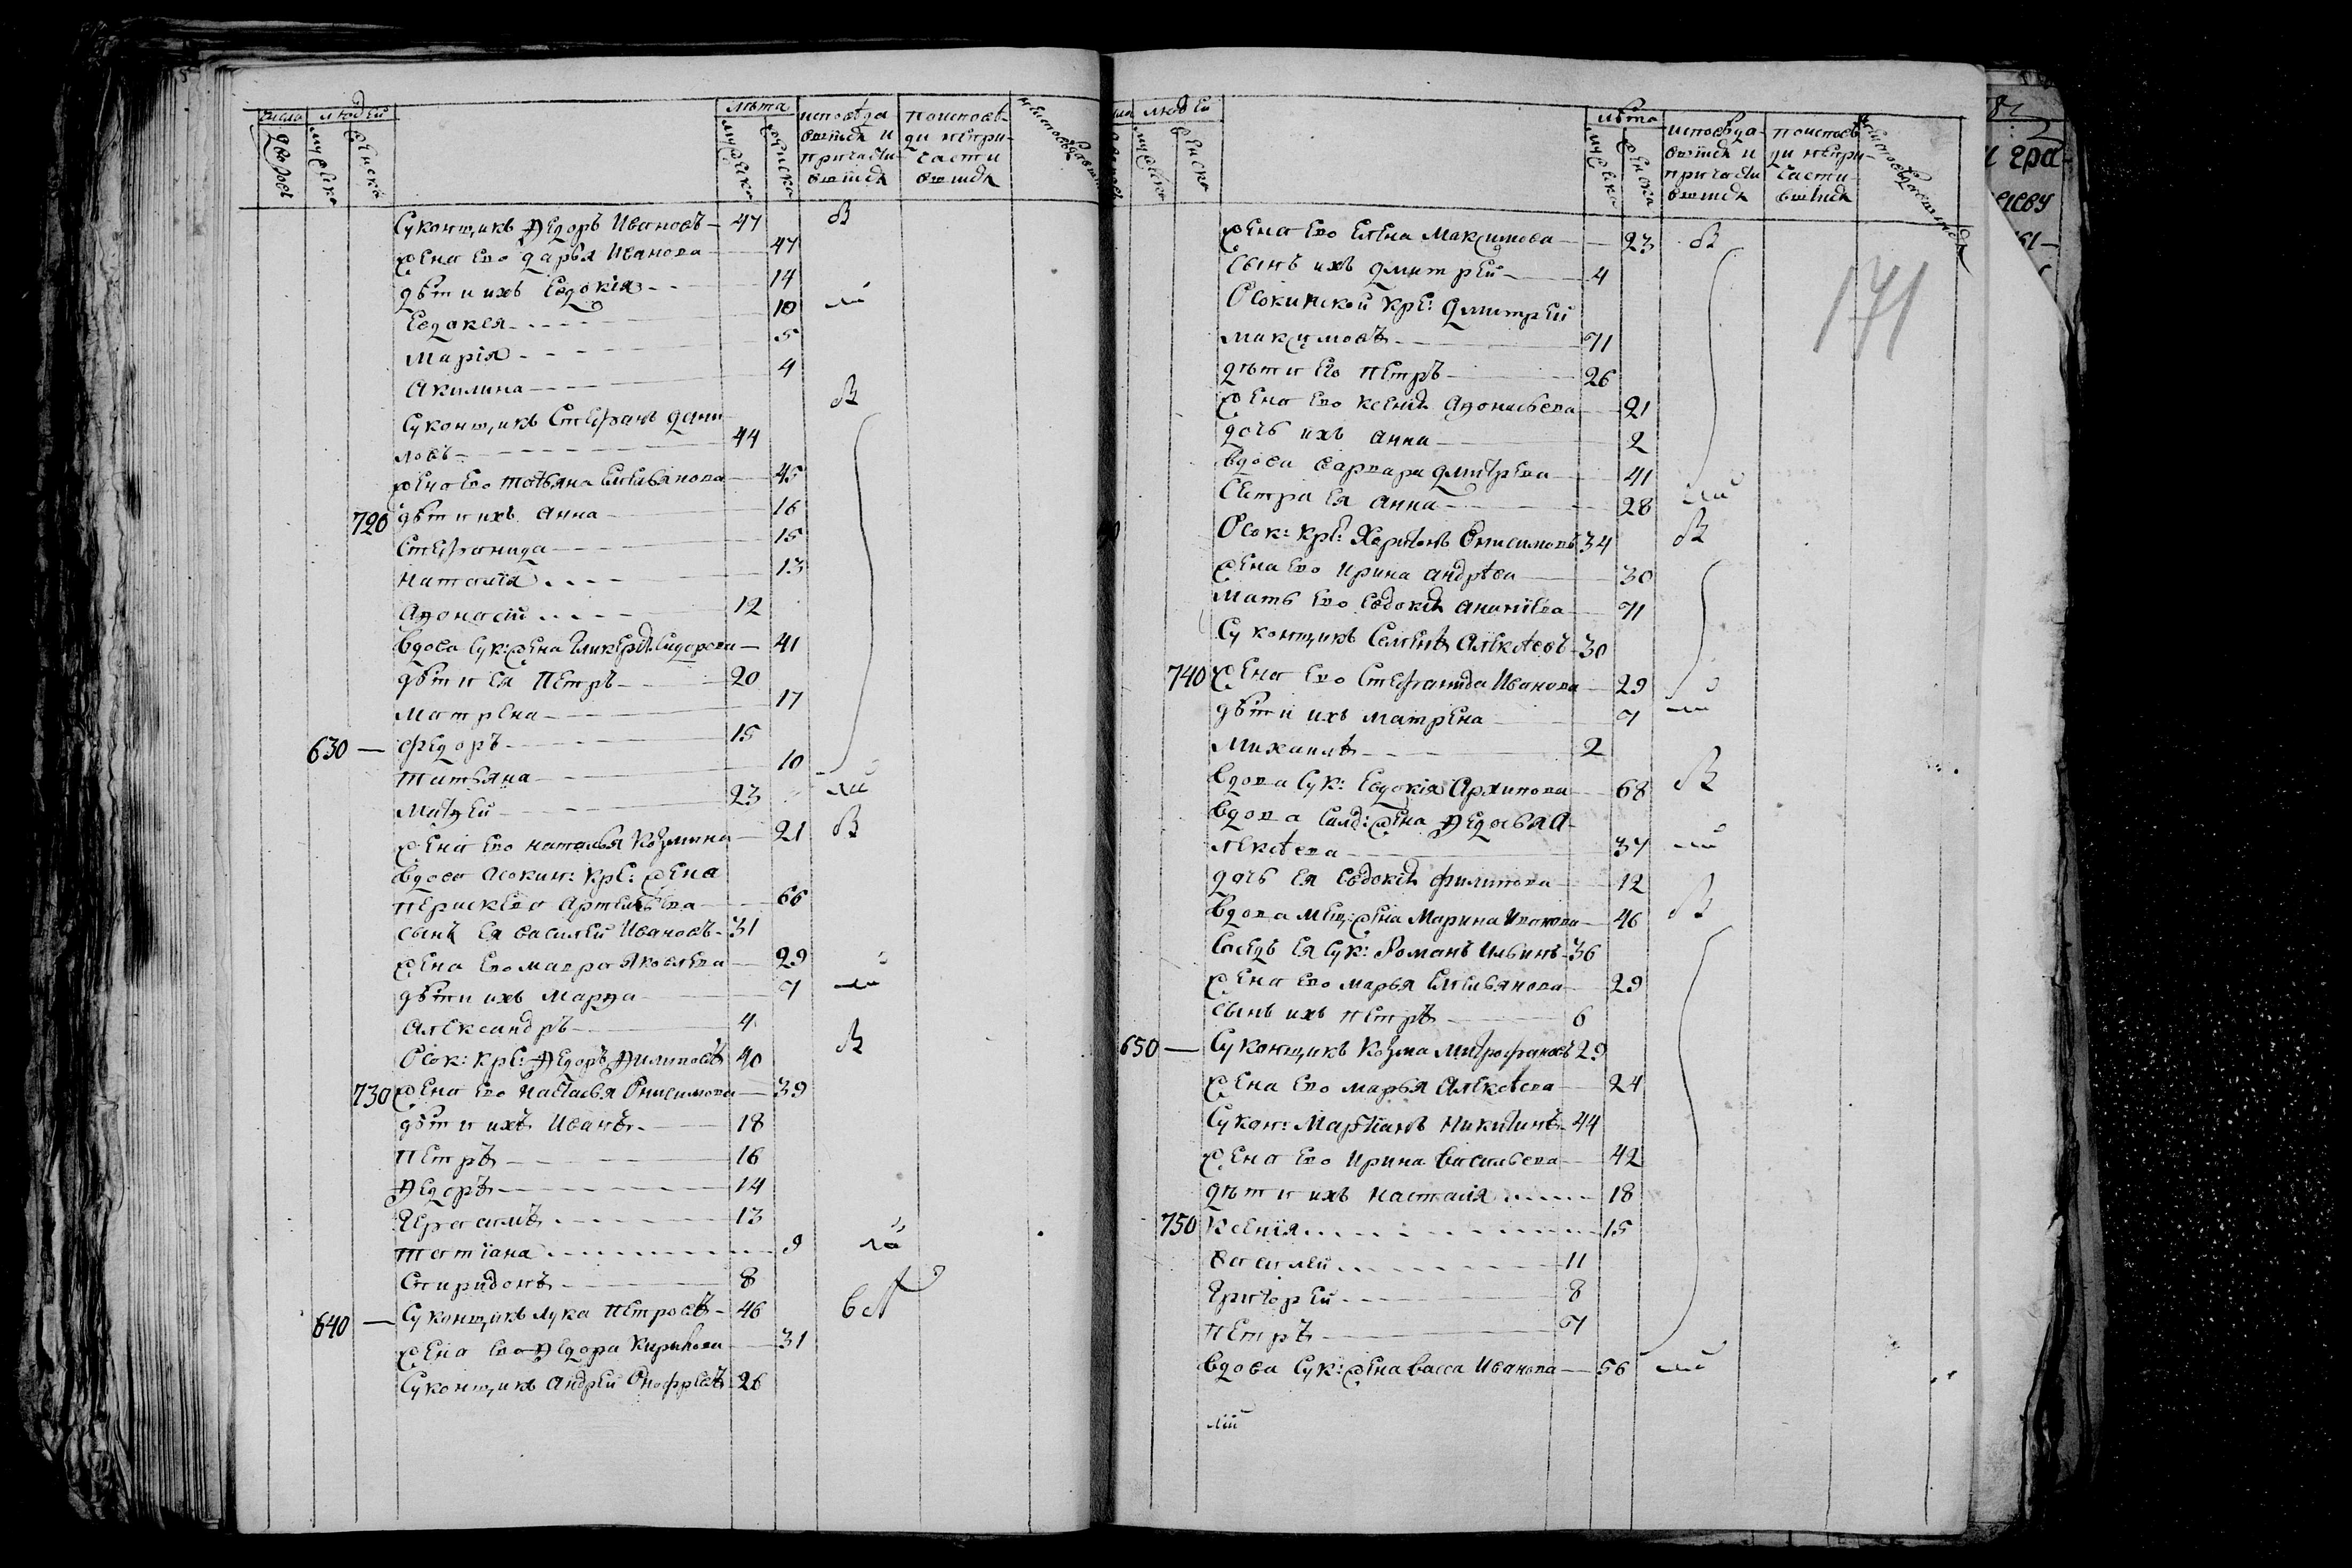 число людей лѣта исповѣда- поисповѣ- неисповѣдавшихся
дворовъ мужеска женска мужеска женска вшихся и ди непри-
причасти- части-
вшихся вшихся
Суконщикъ Ѳедоръ Ивановъ 47 в
жена ево дарья Иванова 47
дѣти ихъ Евдокія 14
Евдокея 10 ма
Марія 5
Акилина 4
Суконщикъ Стефанъ дани в
ловъ 44
жена ево татьяна Емельянова 45
720 дѣти ихъ анна 16
Стефанида 15
наталія 13
Аѳонасій 12
вдова Сук: жена Гликерія Сидорова 41
дѣти ея Петръ 20
матрена 17
630 федоръ 15
татьяна 10
Матѳей 23 ма
жена ево наталья Козмина 21 в
вдова Осокин: кре: жена
перасковя Артемьева 66
сынъ ея василей Ивановъ 31
жена ево мавра Яковлева 29
дѣти ихъ марѳа 7 ма
александръ 4
Осок: кре: Ѳедоръ Ѳилиповъ 40 в
730 жена ево настасья Онисимова 39
дѣти ихъ Иванъ 18
Петръ 16
Ѳедоръ 14
Герасимъ 13
татіана 9 ма
Спиридонъ 8
640 Суконщикъ лука Петровъ 46
жена ево Ѳедора Кирилова 31
Суконщикъ андрей Онофреевъ 26
число людей лѣта исповѣда- поисповѣ- неисповѣдавшихся
мужеска женска мужеска женска вшихся и ди непри-
причасти части-
вшихся вшихся
жена ево елена Максимова 23 в
сынъ ихъ дмитрей 4
171
Осокинской кре: дмитрей
максимовъ 71
дѣти ево петръ 26
жена ево ксенія Аѳонасьева 21
дочь ихъ анна 2
вдова варвара дмитрева 41
Сестра ея анна 28 ма
Осок: кре: Харитонъ Онисимовъ 34 в
жена ево ирина андрѣева 30
мать ево евдокія ананіева 71
Суконщикъ Семенъ Алексѣевъ 30
740 жена ево Стефанида Иванова 29
дѣти ихъ матрена 7 ма
михаилъ 2
вдова Сук: Евдокія Архипова 68 в
вдова Салд: жена Ѳедосья А-
лексѣева 37 ма
дочь ея евдокія филипова 12
вдова мещ: жена Марина Иванова 46 в
Сосѣдъ ея Сук: Романъ Ильинъ 36
жена ево марья Емельянова 29
сынъ ихъ петръ 6
650 Суконщикъ Козма митрофановъ 29
жена ево марья Алексѣева 24
Сукон: Мартіанъ Никитинъ 44
жена ево ирина васильева 42
дѣти ихъ настасія 18
750 Ксенія 15
василей 11
Григорей 8
петръ 7
вдова Сук: жена васса Иванова 56 ма